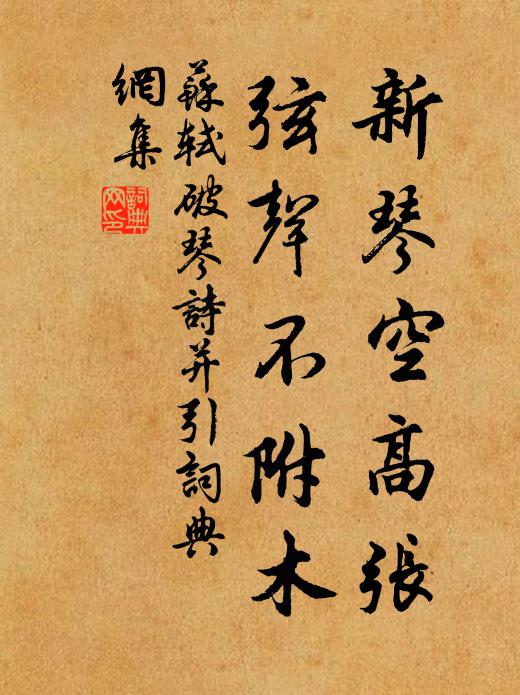 新琴空高張
弦聲不附木
蘇軾破琴詩并引詞典
網集
詞典
网印